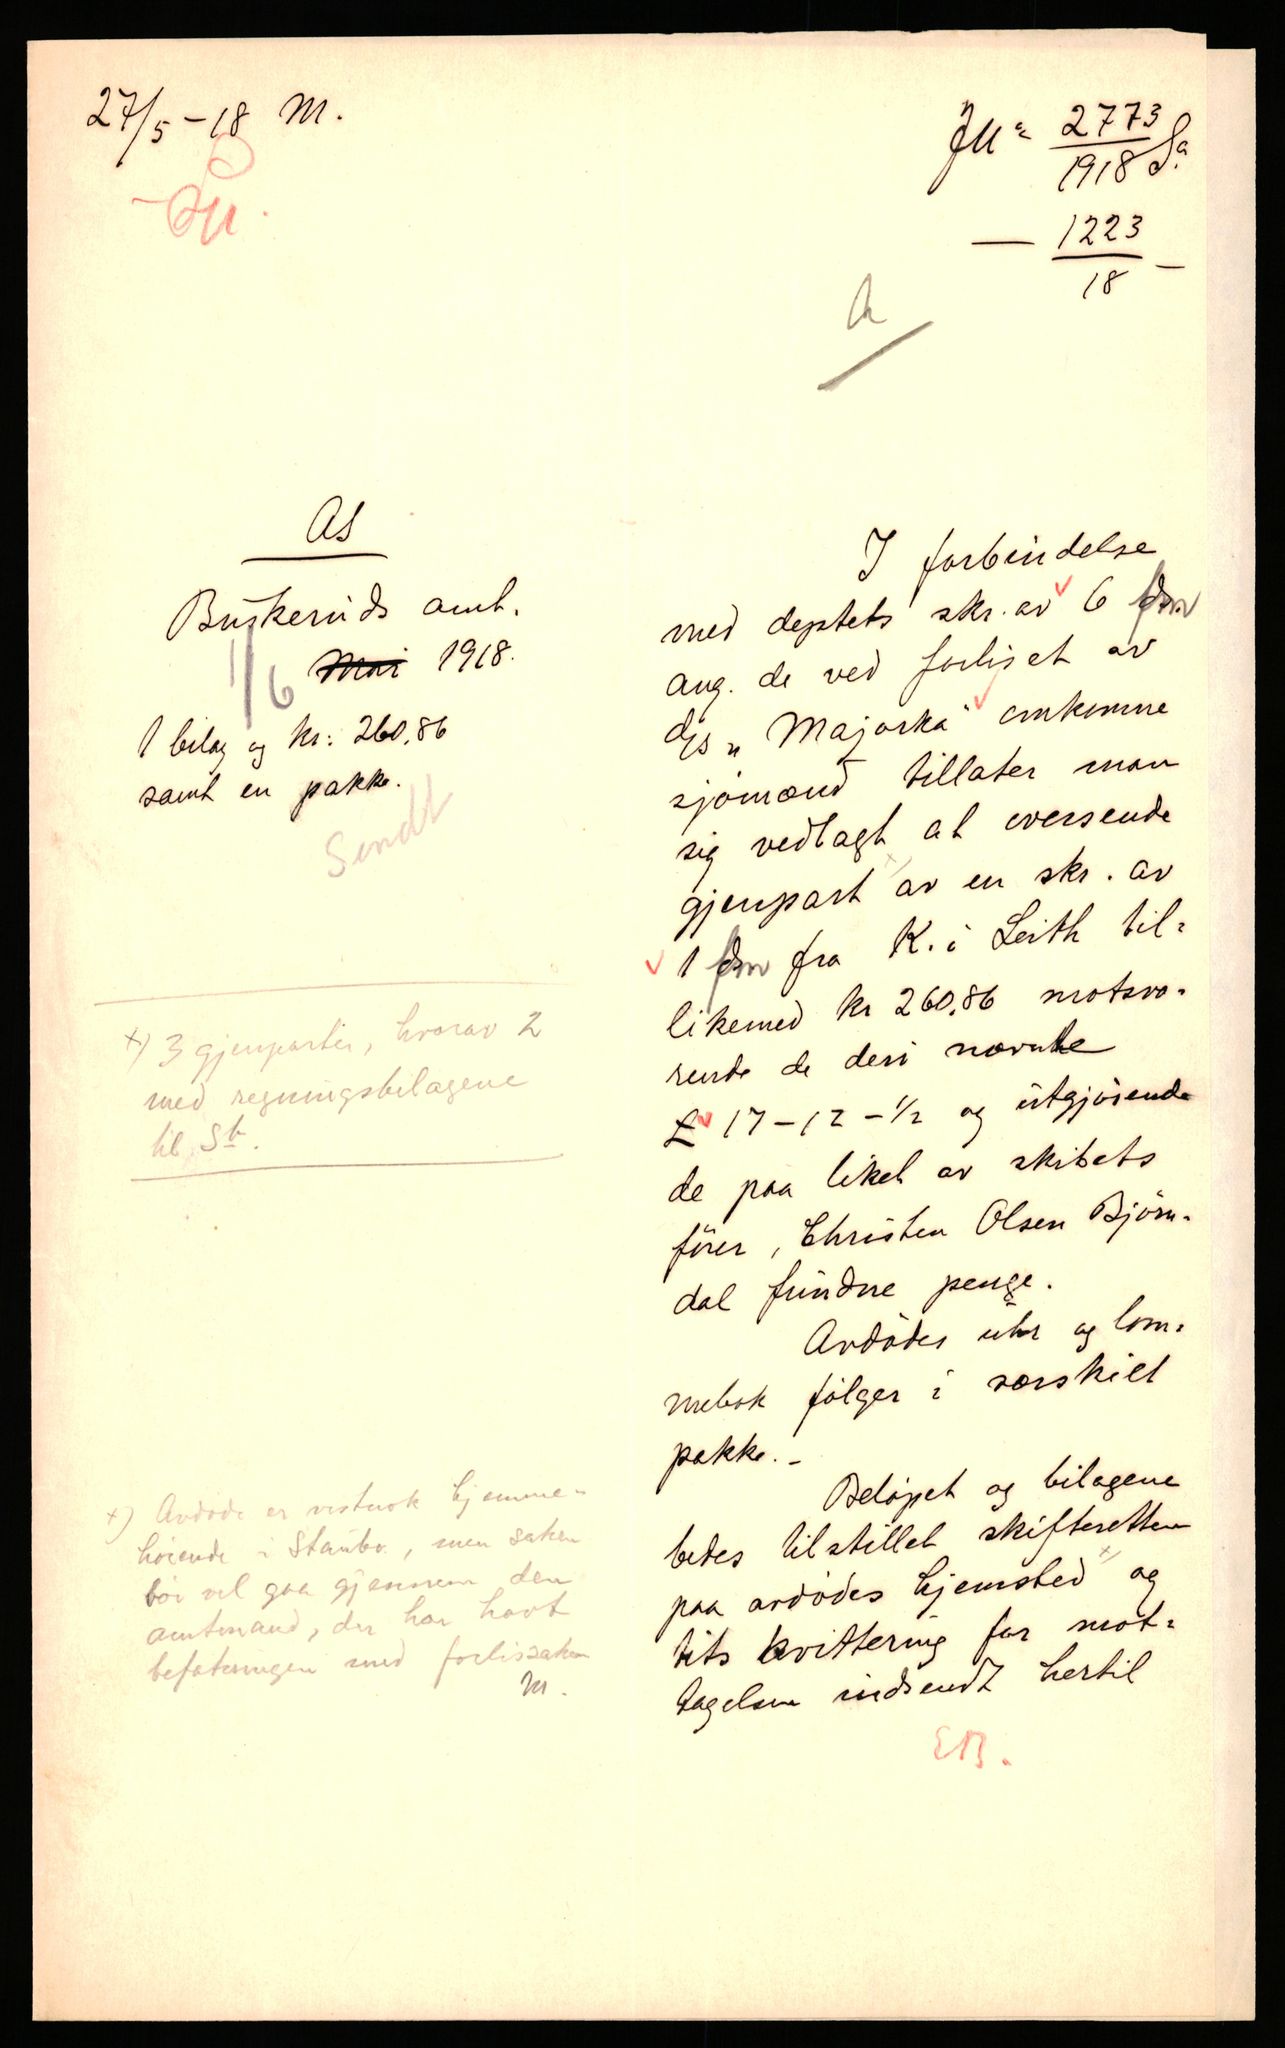 27/5 - 18 M.
JN: 2773/1918 Sa.
— 1223/18 —
AS
Buskeruds amt.
1/6 Mai 1918.
1 bilag og kr: 260,86
samt en pakke.
Sendt
x) 3 gjenparter, hvorav 2
med regningsbilagene
til St.
x) Avdøde er vistnok hjemme-
hörende i Staubø, men saken
bör vel gaa gjennem den
amtmand, der har havt
befatningen med forlissaken
M.
I forbindelse
med deptets skr. av 6 f.m.
ang. de ved forliset av
D/S „Majorka" omkomne
sjömænd tillater man
sig vedlagt at oversende
gjenpart x) av en skr. av
1 f.m. fra K. i Leith til-
likemed kr 260,86 motsva-
rende de deri nævnte
£ 17-12-1/2 og utgjörende
de paa liket av skibets
förer, Christen Olsen Björn-
dal fundne penge.
Avdödes uhr og lom-
mebok fölger i særskilt
pakke. -
Belöpet og bilagene
bedes tilstillet skifteretten
paa avdödes hjemsted x) og
dets kvittering for mot-
tagelsen indsendt hertil
EB.